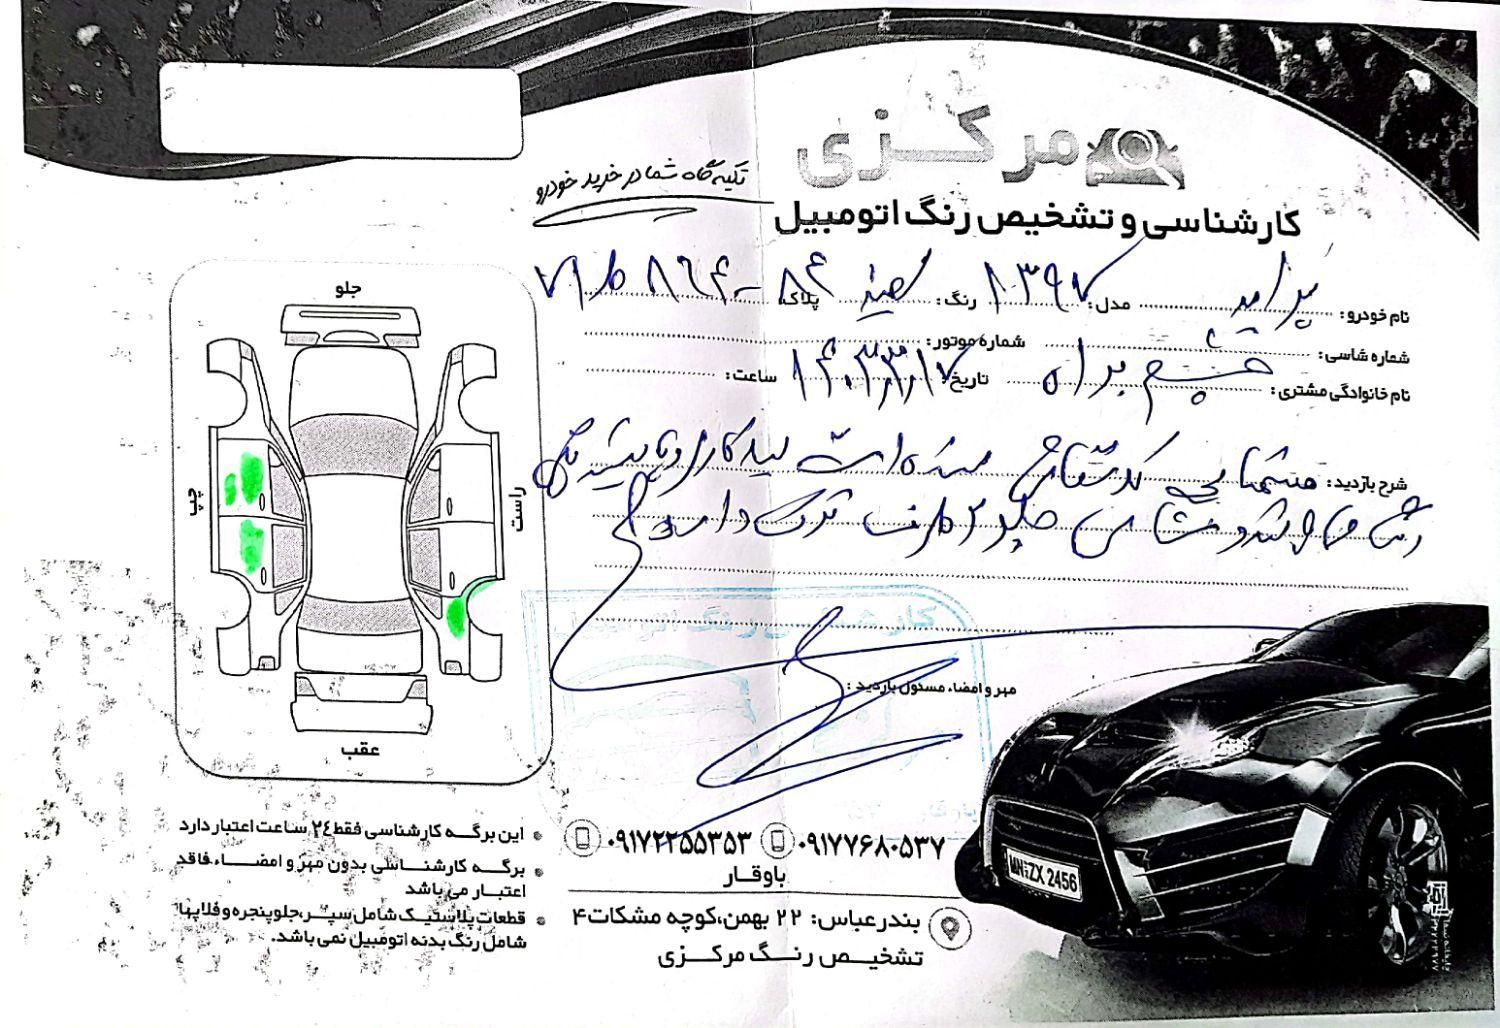 مرکزی
تکیه گاه شما در خرید خودرو
کارشناسی و تشخیص رنگ اتومبیل
نام خودرو: پراید مدل: ۱۳۹۷ رنگ: سفید پلاک:
شماره شاسی: شماره موتور:
نام خانوادگی مشتری: چشم براه تاریخ: ۱۴۰۳٫۳٫۱۷ ساعت:
شرح بازدید:
جلو ۲ طرف ترک دارد
مهر و امضاء مسئول بازدید:
جلو
چپ
راست
عقب
این برگه کارشناسی فقط ۲۴ ساعت اعتبار دارد
برگه کارشناسی بدون مهر و امضاء، فاقد
اعتبار می باشد
قطعات پلاستیک شامل سپر، جلو پنجره و فلاپها
شامل رنگ بدنه اتومبیل نمی باشد.
۰۹۱۷۷۶۸۰۵۳۷ ۰۹۱۷۲۲۵۵۳۵۳
باوقار
بندرعباس: ۲۲ بهمن، کوچه مشکات ۴
تشخیص رنگ مرکزی
کارشناسی رنگ اتومبیل
MN ZX 2456